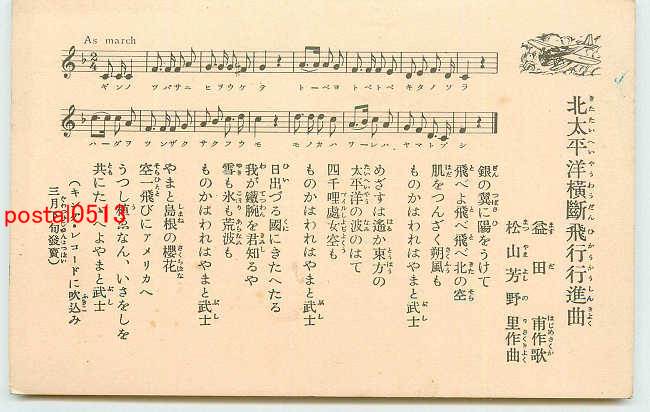 北太平洋横斷飛行行進曲
きたたいへいやうわうだんひかうかうしんきよく
益田甫作歌
松山芳野里作曲
As march
ギンノ ツバサニ ヒヲウケテ トベヨトベトベ キタノソラ
ハダヲツンザク サクフウモ モノカハ ワレハ ヤマトブシ
銀の翼に陽をうけて
飛べよ飛べ飛べ北の空
肌をつんざく朔風も
ものかはわれはやまと武士
めざすは遙か東方の
太平洋の波のはて
四千哩處女空も
ものかはわれはやまと武士
日出づる國にきたへたる
我が鐵腕を君知るや
雪も氷も荒波も
ものかはわれはやまと武士
やまと島根の櫻花
空一飛びにアメリカへ
うつし なん、いさをしを
共にたゝへよやまと武士
(キング・レコードに吹込み
三月 旬發賣)
postal0513